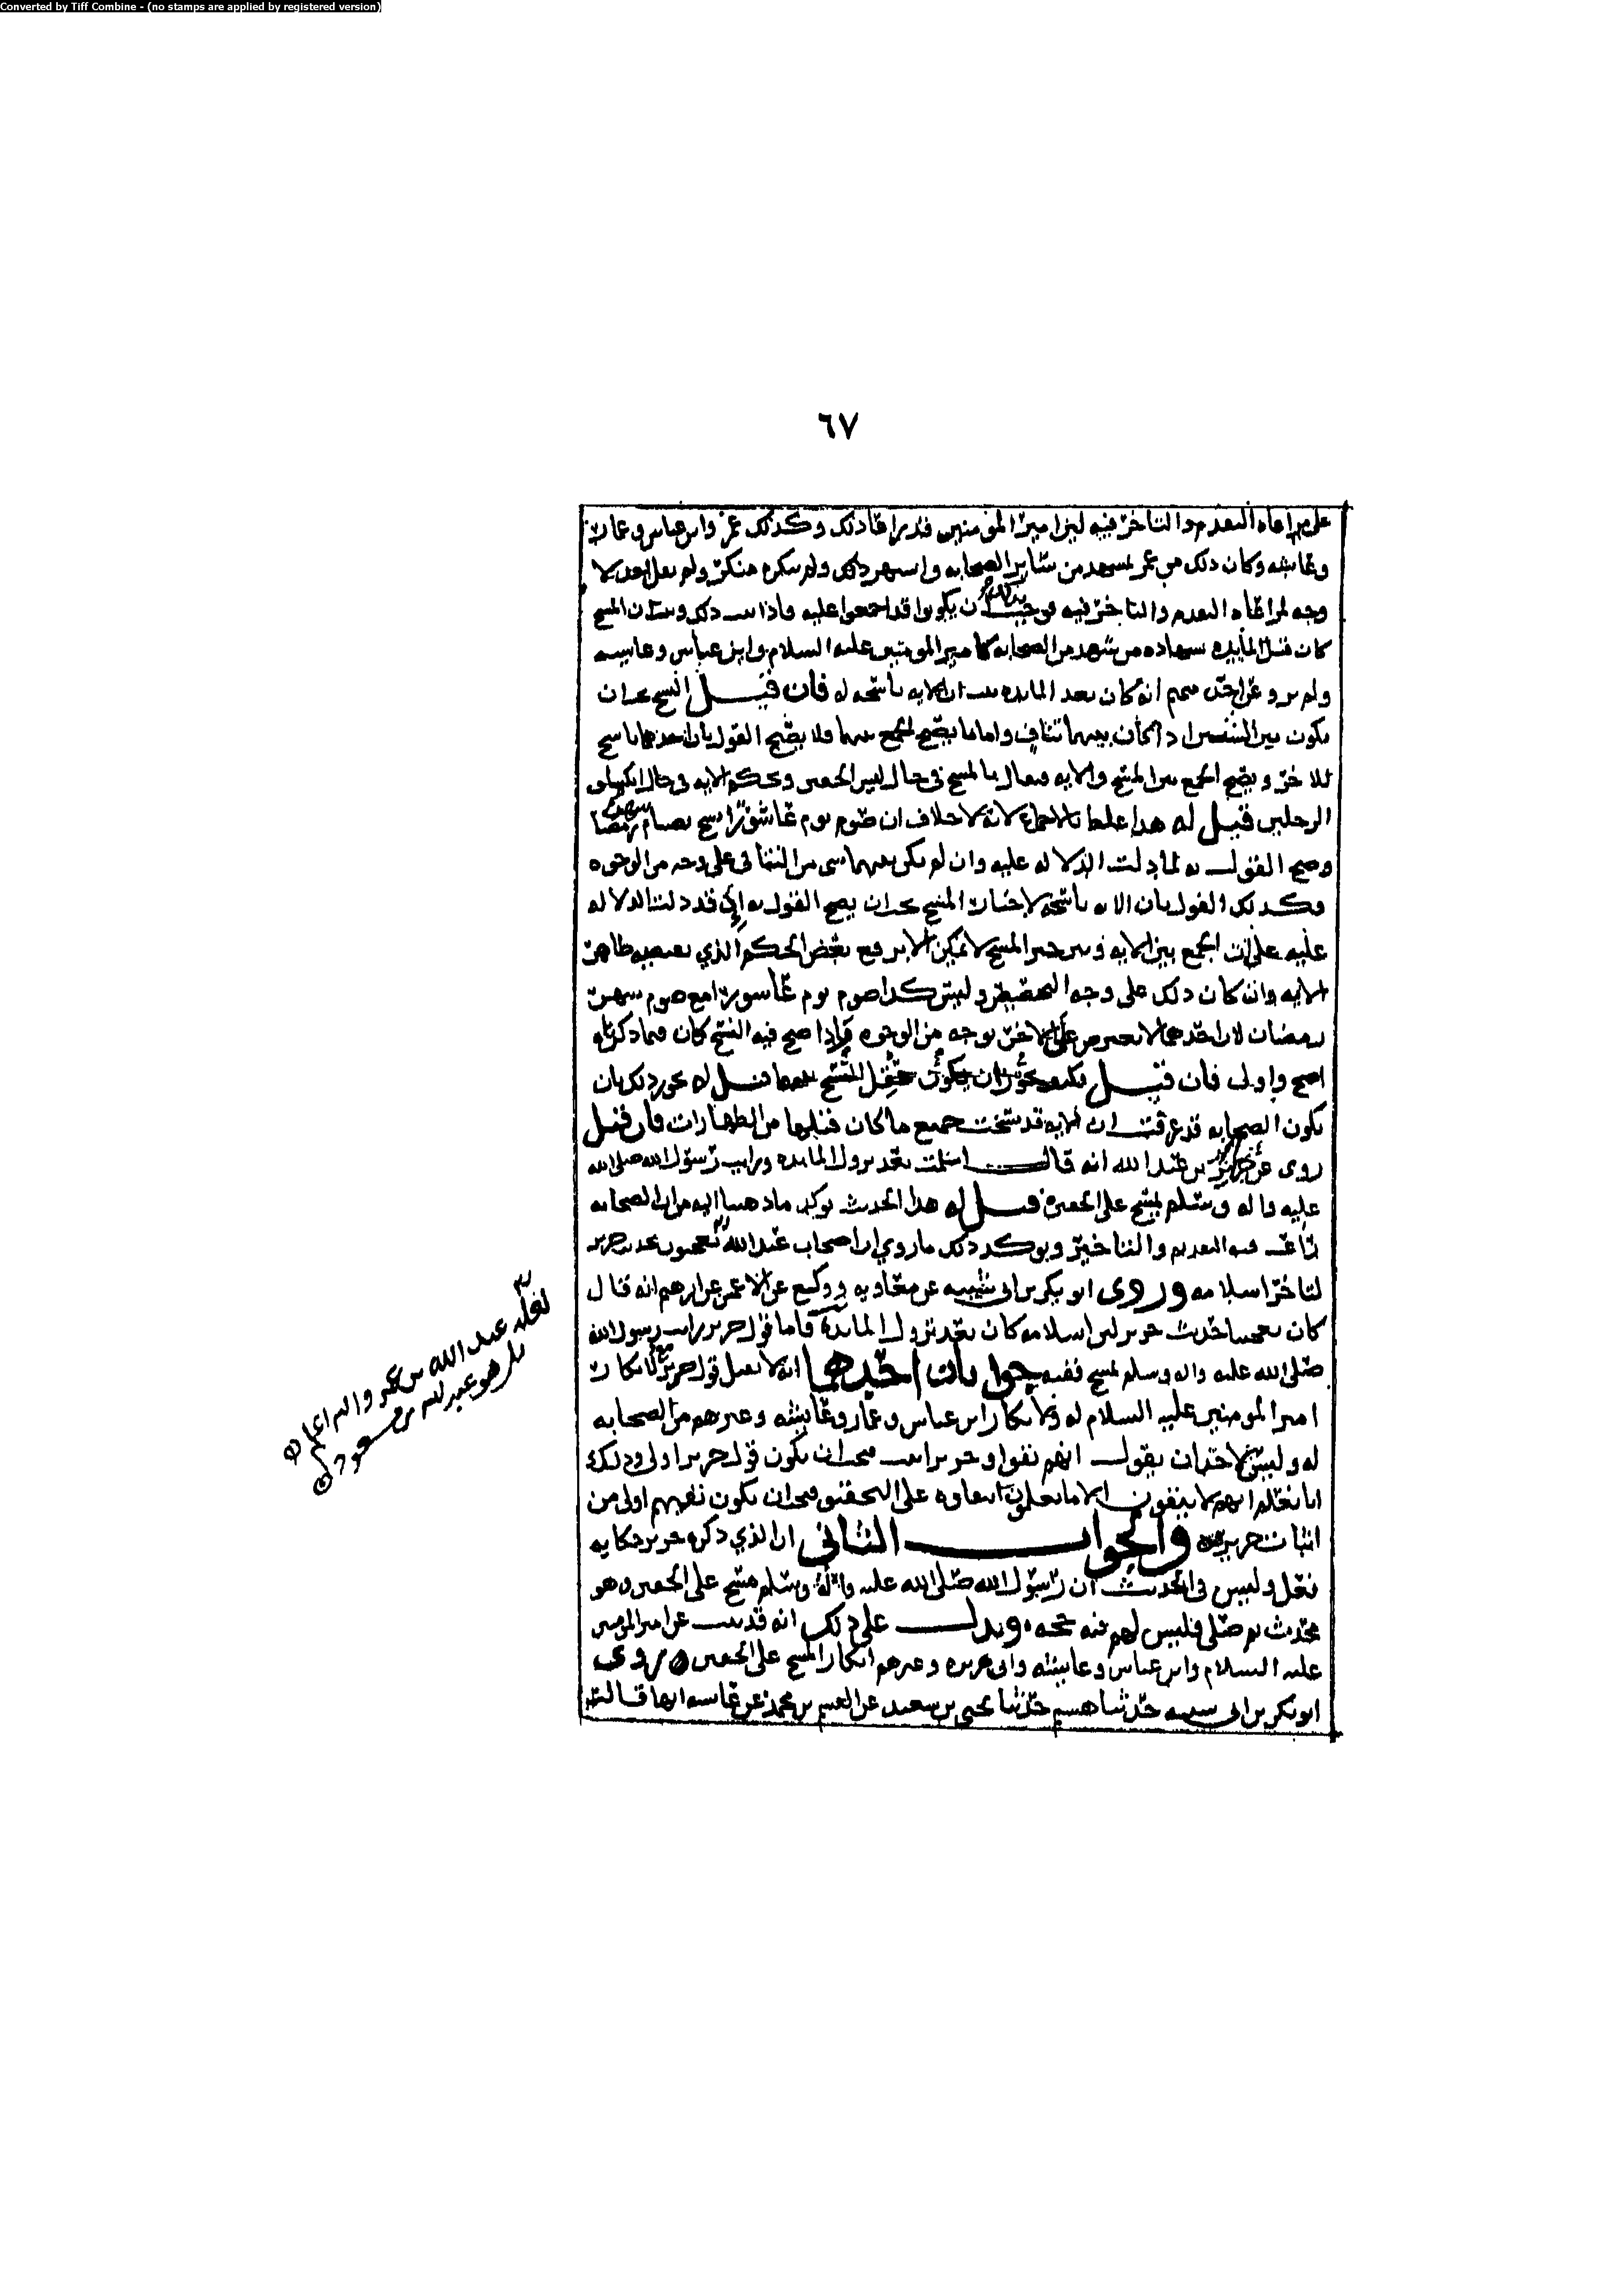 Converted by Tiff Combine - (no stamps are applied by registered version)
٦٧
على مراعاه التقدم والتاخر فيه لان امير المومنين قد راعا ذلك وكذلك عمر وابن عباس وعمار
وعايشه وكان ذلك من عمر بمشهد من ساير الصحابه واشتهر ذلك ولم ينكره منكر ولم يقل احد لا
وجه لمراعاه التقدم والتاخر فيه فوجب ان يكونوا قد اجمعوا عليه فاذا ثبت ذلك وثبت ان المسح
كان قبل المايده بشهاده من شهد من الصحابه كامير المومنين عليه السلام وابن عباس وعايشه
ولم يرو عن احد منهم انه كان بعد المايده ثبت ان الايه ناسخه له فان قيل النسخ يجب ان
يكون بين الشيئين اذا كان بينهما تناف واما ما يصح الجمع بينهما فلا يصح القول بان احدهما ناسخ
للاخر ويصح الجمع بين المسح والايه فيقال بالمسح في حال لبس الخفين وبحكم الايه في حال انكشاف
الرجلين قيل له هذا غلط بالاجماع لانه لا خلاف ان صوم يوم عاشورا نسخ بصيام شهر رمضان
وصح القول به لما دلت الدلاله عليه وان لم يكن بينهما شى من التنافى على وجه من الوجوه
وكذلك القول بان الايه ناسخه لاخبار المسح يجب ان يصح القول به اذ قد دلت الدلاله
عليه على ان الجمع بين الايه وبين خبر المسح لا يمكن الا برفع بعض الحكم الذي يقتضيه ظاهر
الايه وان كان ذلك على وجه التخصيص وليس كذا صوم يوم عاشورا مع صوم شهر
رمضان لان احدهما لا يعترض على الاخر بوجه من الوجوه فاذا صح فيه النسخ كان فيما ذكرناه
اصح واولى فان قيل فكيف يجوز ان يكون حصل النسخ بينهما قيل له يجوز ذلك بان
يكون الصحابه قد عرفت ان الايه قد نسخت جميع ما كان قبلها من الطهارات فان قيل
روى عن جرير بن عبد الله انه قال اسلمت بعد نزول المايده ورايت رسول الله صلى الله
عليه واله وسلم يمسح على الخفين قيل له هذا الحديث يوكد ما ذهبنا اليه من ان الصحابه
راعت فيه التقديم والتاخير ويوكد ذلك ما روي ان اصحاب عبد الله يعجبون بحديث جرير
لتاخر اسلامه وروى ابو بكر بن ابي شيبه عن معاويه ووكيع عن الاعمش عن ابرهيم انه قال
كان يعجبنا حديث جرير لان اسلامه كان بعد نزول المايده فاما قول جرير رايت رسول الله
صلى الله عليه واله وسلم يمسح ففيه جوابان احدهما انه لا يقبل قول جرير مع انكار
امير المومنين عليه السلام له وانكار ابن عباس وعمار وعايشه وغيرهم من الصحابه
له وليس لاحد ان يقول انهم نفوا وجرير اثبت فيجب ان يكون قول جرير اولى وذلك
انا نعلم انهم لا ينفون الا ما يعلمون انتفاوه على التحقيق فيجب ان يكون نفيهم اولى من
اثبات جرير والجواب الثاني ان الذي ذكره جرير حكايه
فعل وليس في الحديث ان رسول الله صلى الله عليه واله وسلم مسح على الخفين وهو
محدث ثم صلى فليس لهم فيه حجه ويدل على ذلك انه قد ثبت عن امير المومنين
عليه السلام وابن عباس وعايشه وابي هريره وغيرهم انكار المسح على الخفين وروى
ابو بكر بن ابي شيبه حدثنا هشيم حدثنا يحيى بن سعيد عن القسم بن محمد عن عايشه انها قالت
لعله عبد الله بن عمر والله اعلم
بل هو عبد الله بن مسعود